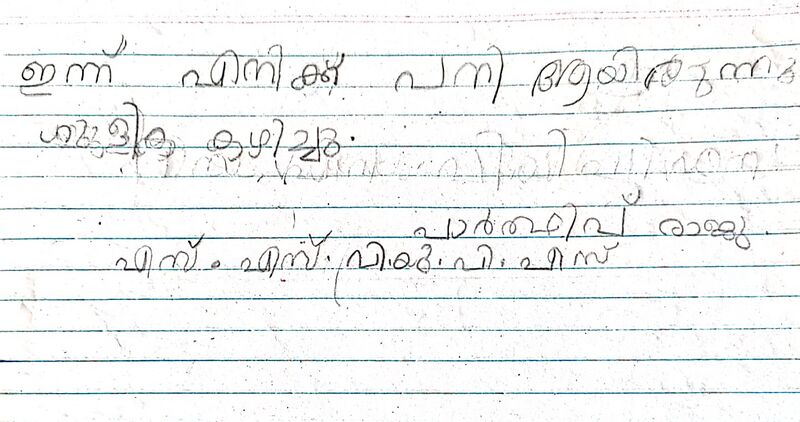 ഇന്ന് എനിക്ക് പനി ആയിരുന്നു
ഗുളിക കഴിച്ചു.
പാർത്ഥിപ് രാജു.
എസ്. എസ്. വി. യു. പി. എസ്